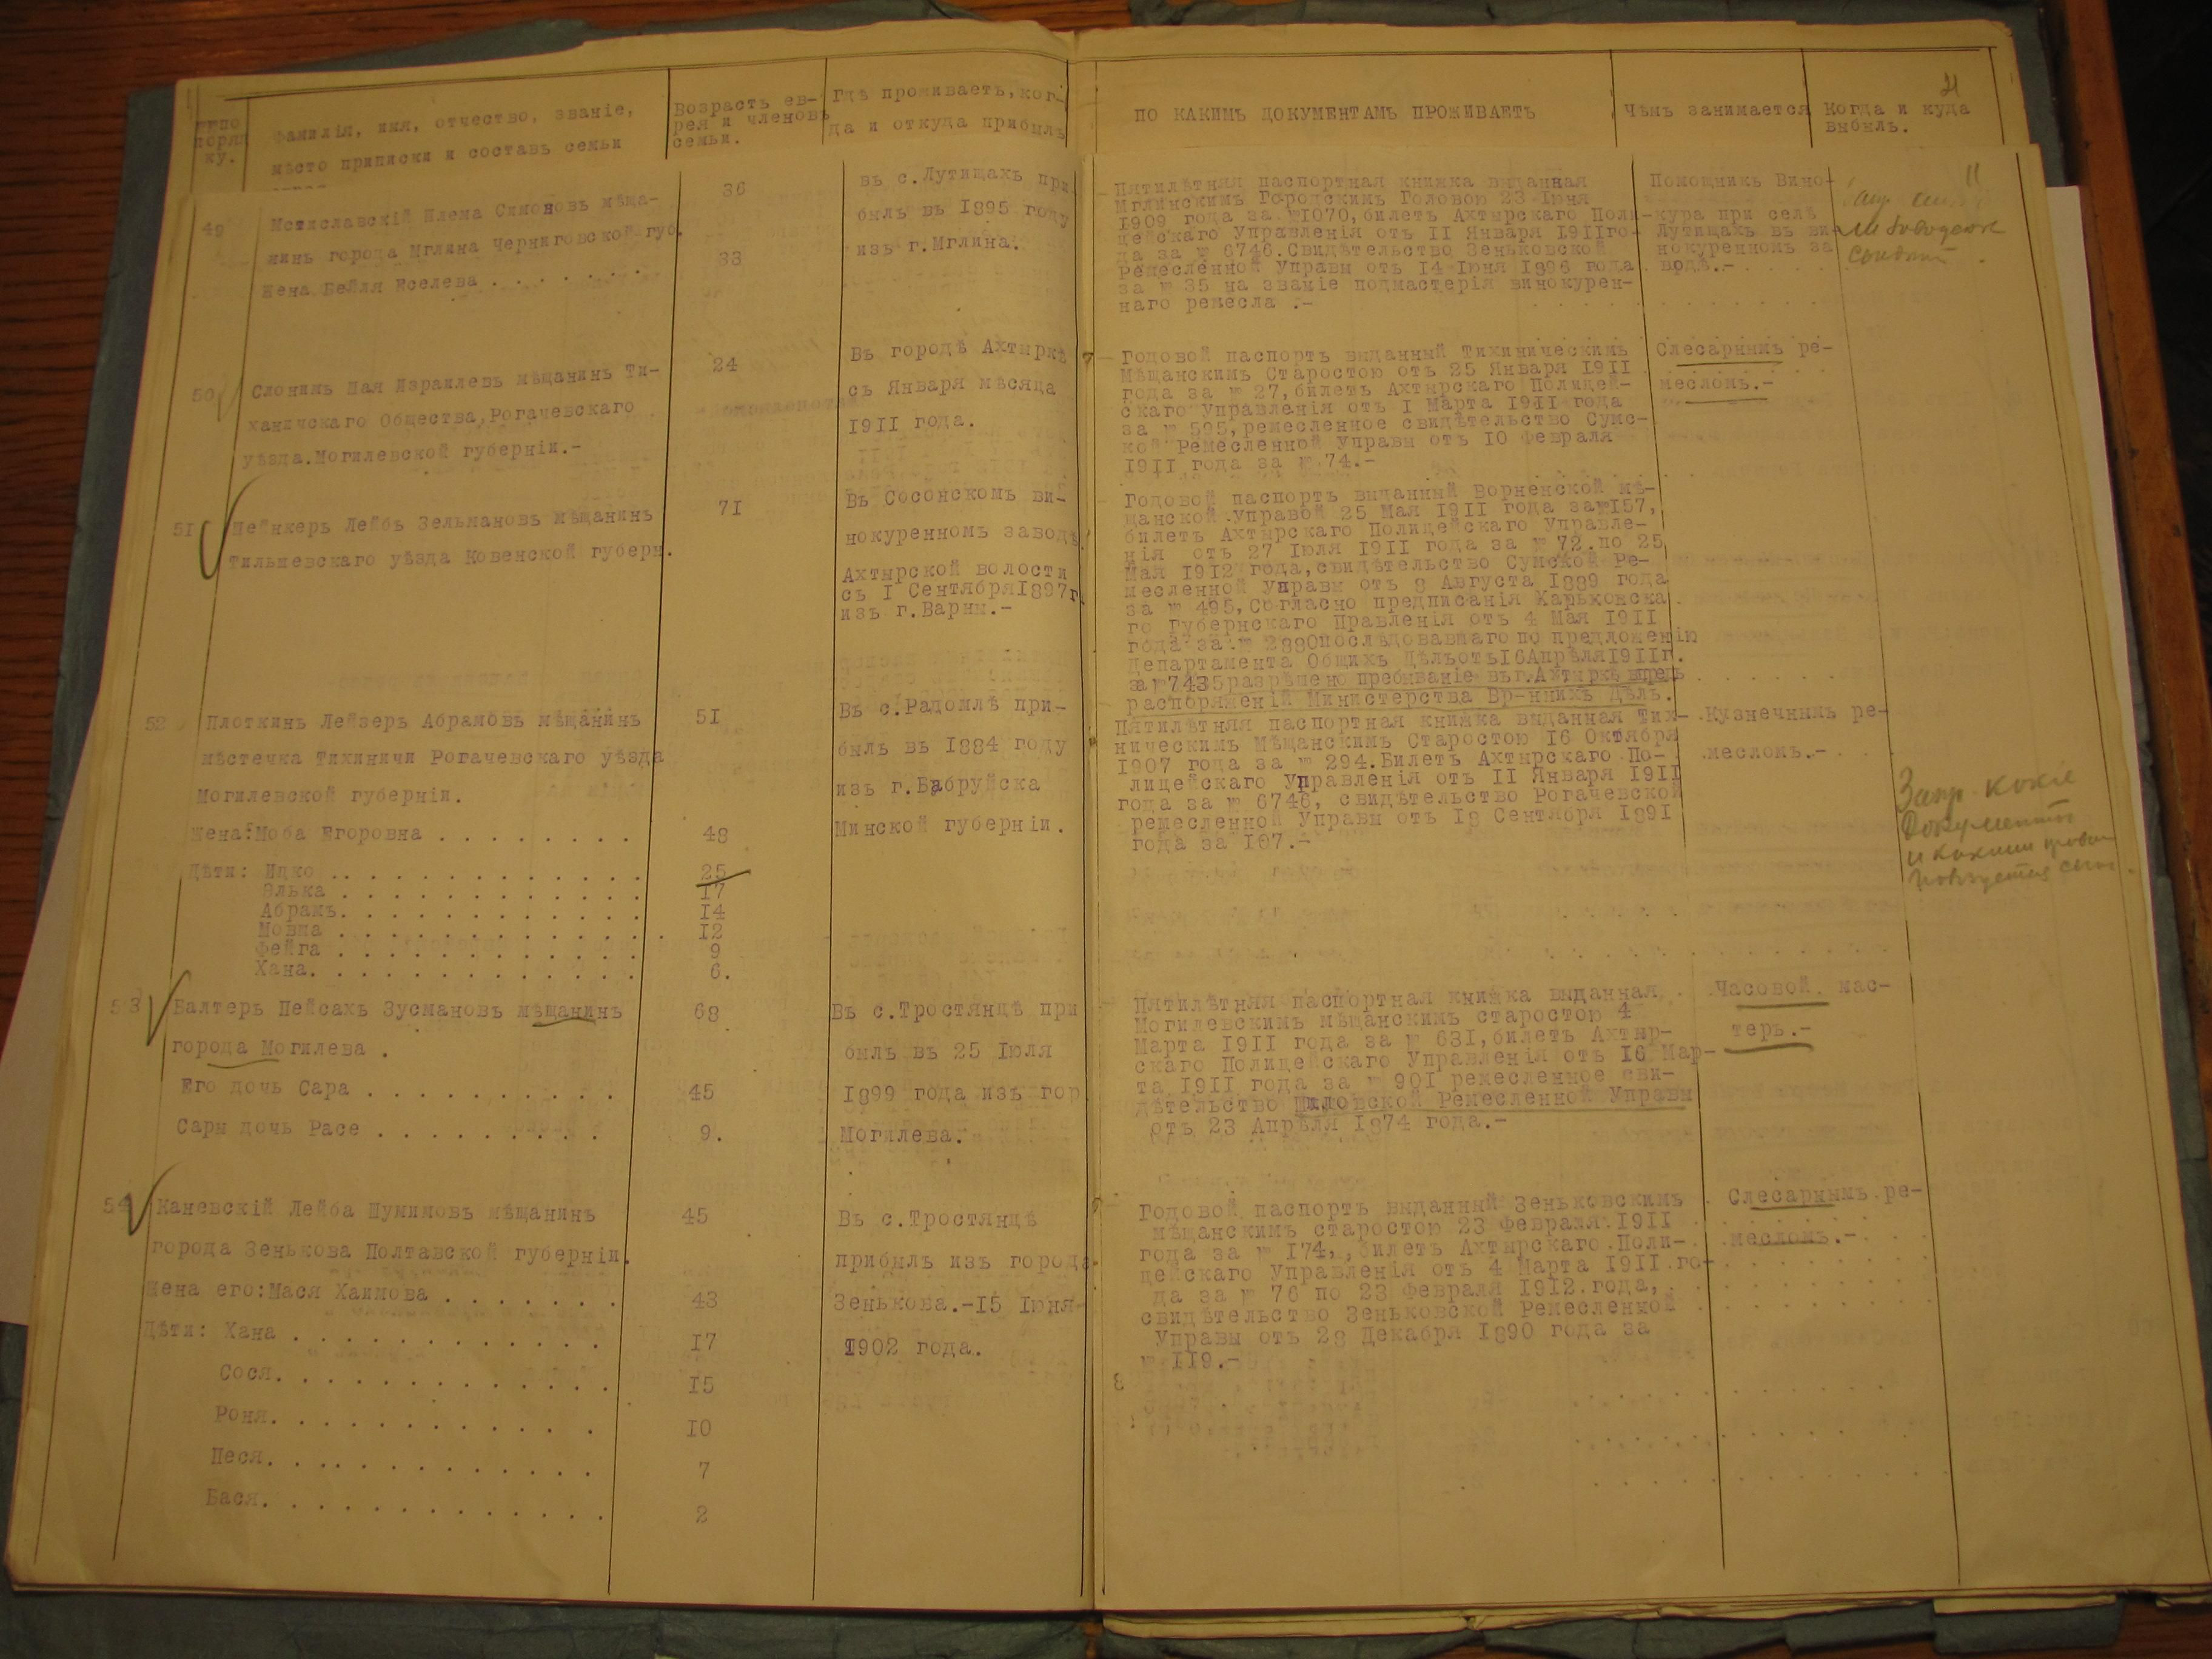 №№ по
поряд
ку.
Фамилія, имя, отчество, званіе,
мѣсто приписки и составъ семьи
Возрасть ев-
рея и членовъ
семьи.
Гдѣ проживаетъ, ког-
да и откуда прибылъ
ПО КАКИМЪ ДОКУМЕНТАМЪ ПРОЖИВАЕТЪ
Чѣмъ занимается
Когда и куда
выбылъ.
21
11
49
Мстиславскій Шлема Симоновъ мѣща-
нинъ города Мглина Черниговской губ.
Жена Бейля Еселева . . . . . .
36
33
въ с.Лутищахъ при
былъ въ 1895 году
изъ г.Мглина.
Пятилѣтняя паспортная книжка выданная
Мглинскимъ Городскимъ Головою 23 Іюня
1909 года за №1070, билетъ Ахтырскаго Поли-
цейскаго Управленія отъ II Января 1911го-
да за № 6746.Свидѣтельство Зеньковской
Ремесленной Управы отъ 14 Іюня 1896 года
за № 35 на званіе подмастерія винокурен-
наго ремесла .-
Помощникъ Вино-
кура при селѣ
Лутищахъ въ ви-
нокуренномъ за
водѣ.-
50
Слонимъ Шая Израилевъ мѣщанинъ Ти-
ханичскаго Общества,Рогачевскаго
уѣзда.Могилевской губерніи.-
24
Въ городѣ Ахтыркѣ
съ Января мѣсяца
1911 года.
Годовой паспортъ выданный Тихиническимъ
Мѣщанскимъ Старостою отъ 25 Января 1911
года за № 27, билетъ Ахтырскаго Полицей-
скаго Управленія отъ I Марта 1911 года
за № 595, ремесленное свидѣтельство Сумс-
кой Ремесленной Управы отъ 10 Февраля
1911 года за № 74.-
Слесарнымъ ре-
месломъ.-
51
Шейнкеръ Лейбъ Зельмановъ мѣщанинъ
Тильшевскаго уѣзда Ковенской губерн.
71
Въ Сосонскомъ ви-
нокуренномъ заводѣ.
Ахтырской волости
съ I Сентября1897г.
изъ г.Варны.-
Годовой паспортъ выданный Ворненской мѣ-
щанской управой 25 Мая 1911 года за№157,
билетъ Ахтырскаго Полицейскаго Управле-
нія отъ 27 Іюля 1911 года за № 72 по 25
Мая 1912 года, свидѣтельство Сумской Ре-
месленной Управы отъ 8 Августа 1889 года
за № 495, Согласно предписанія Харьковска
го Губернскаго Правленія отъ 4 Мая 1911
года за № 2880послѣдовавшаго по предложенію
Департамента Общихъ Дѣлъотъ16Апрѣля1911г.
за №7435разрѣшено пребываніе въ г.Ахтыркѣ впредь
распоряженій Министерства Вр-ннихъ Дѣлъ.
52
Плоткинъ Лейзеръ Абрамовъ мѣщанинъ
мѣстечка Тихиничи Рогачевскаго уѣзда
Могилевской губерніи.
Жена:Моба Егоровна . . . . . . . .
Дѣти: Ицко . . . . . . . . . . . . . .
Элька . . . . . . . . . . . . .
Абрамъ. . . . . . . . . . . . .
Мовша . . . . . . . . . . . . . .
Фейга . . . . . . . . . . . . .
Хана. . . . . . . . . . . . . .
51
48
25
17
14
12
9
6.
Въ с.Радомлѣ при-
былъ въ 1884 году
изъ г.Бобруйска
Минской губерніи.
Пятилѣтняя паспортная книжка выданная Тих-
ническимъ Мѣщанскимъ Старостою 16 Октября
1907 года за № 294.Билетъ Ахтырскаго По-
лицейскаго Управленія отъ II Января 1911
года за № 6746, свидѣтельство Рогачевской
ремесленной Управы отъ 18 Сентября 1891
года за 107.-
Кузнечнымъ ре-
месломъ.-
Запр. какіе
документы
и какими
пользуется
53
Балтеръ Пейсахъ Зусмановъ мѣщанинъ
города Могилева .
Его дочь Сара . . . . . . . . . .
Сары дочь Расе . . . . . . . . .
68
45
9.
Въ с.Тростянцѣ при
былъ въ 25 Іюля
1899 года изъ гор
Могилева.
Пятилѣтняя паспортная книжка выданная
Могилевскимъ мѣщанскимъ старостою 4
Марта 1911 года за № 631, билетъ Ахтыр-
скаго Полицейскаго Управленія отъ 16 Мар-
та 1911 года за № 901 ремесленное сви-
дѣтельство Шкловской Ремесленной Управы
отъ 23 Апрѣля 1874 года.-
Часовой мас-
теръ.-
54
Каневскій Лейба Шумимовъ мѣщанинъ
города Зенькова Полтавской губерніи.
Жена его:Мася Хаимова . . . . . . .
Дѣти: Хана . . . . . . . . . . . .
Сося. . . . . . . . . . . . . .
Роня. . . . . . . . . . . . . .
Песя. . . . . . . . . . . . . .
Бася. . . . . . . . . . . . . .
45
43
17
15
10
7
2
Въ с.Тростянцѣ
прибылъ изъ города
Зенькова.-15 Іюня-
1902 года.
Годовой паспортъ выданный Зеньковскимъ
мѣщанскимъ старостою 23 Февраля 1911
года за № 174, билетъ Ахтырскаго Поли-
цейскаго Управленія отъ 4 Марта 1911 го-
да за № 76 по 23 Февраля 1912 года,
свидѣтельство Зеньковской Ремесленной
Управы отъ 28 Декабря 1890 года за
№ 119.-
Слесарнымъ ре-
месломъ.-